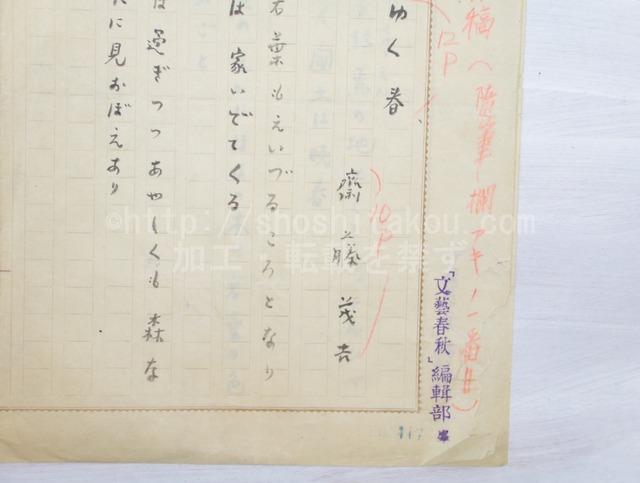 稿へ随筆欄アキノ一番目)
12P
ゆく春
齋藤茂吉
10P
若葉もえいづるころとなり
は家いでてくる
は過ぎつつあやしくも森な
に見おぼえあり
「文藝春秋」編輯部
©http://shoshitakou.com
加工・転載を禁ず